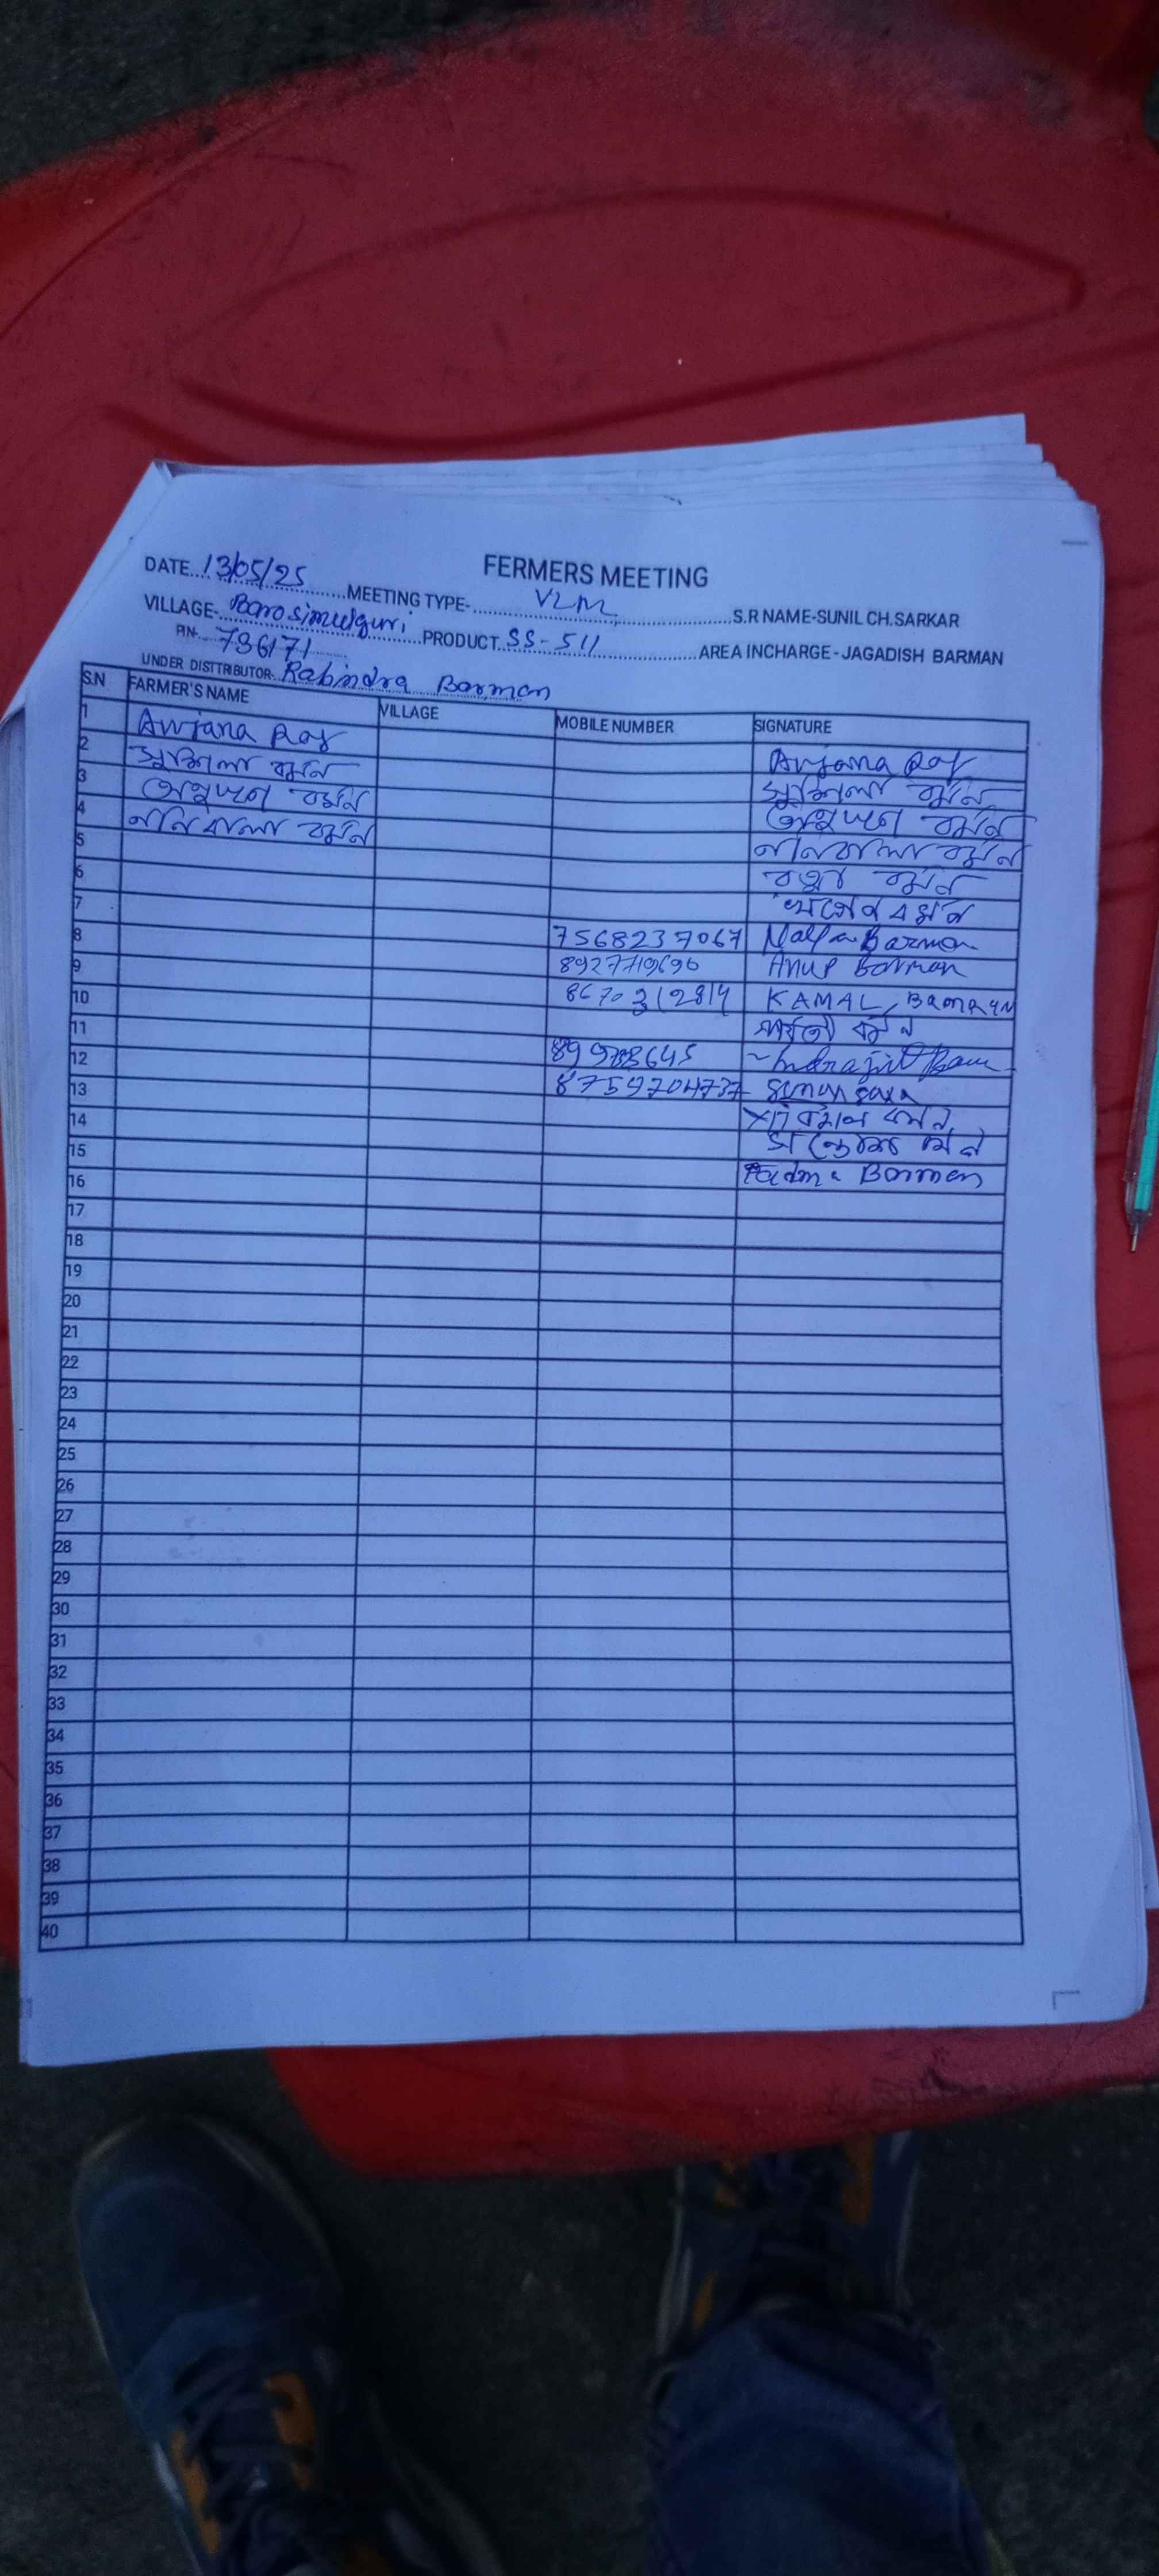 FERMERS MEETING
DATE...13/05/25...MEETING TYPE-...VLM...S.R NAME-SUNIL CH.SARKAR
VILLAGE-...Barosimulguri...PRODUCT...SS-511...AREA INCHARGE-JAGADISH BARMAN
PIN-...736171...
UNDER DISTTRIBUTOR-...Rabindra Barman
S.N FARMER'S NAME VILLAGE MOBILE NUMBER SIGNATURE
1 Anjana Roy Anjana Roy
2 সুশিলা বর্মন সুশিলা বর্মন
3 বর্মন বর্মন
4 ননিবালা বর্মন ননিবালা বর্মন
5 রত্না বর্মন
6 খগেন বর্মন
7
8 7568237067 Barman
9 8927719696 Anup Barman
10 8670312814 KAMAL
11 বর্মন
12 899788645 Indrajit
13 8759704737 Suman
14 বর্মন
15
16 Padma Barman
17
18
19
20
21
22
23
24
25
26
27
28
29
30
31
32
33
34
35
36
37
38
39
40